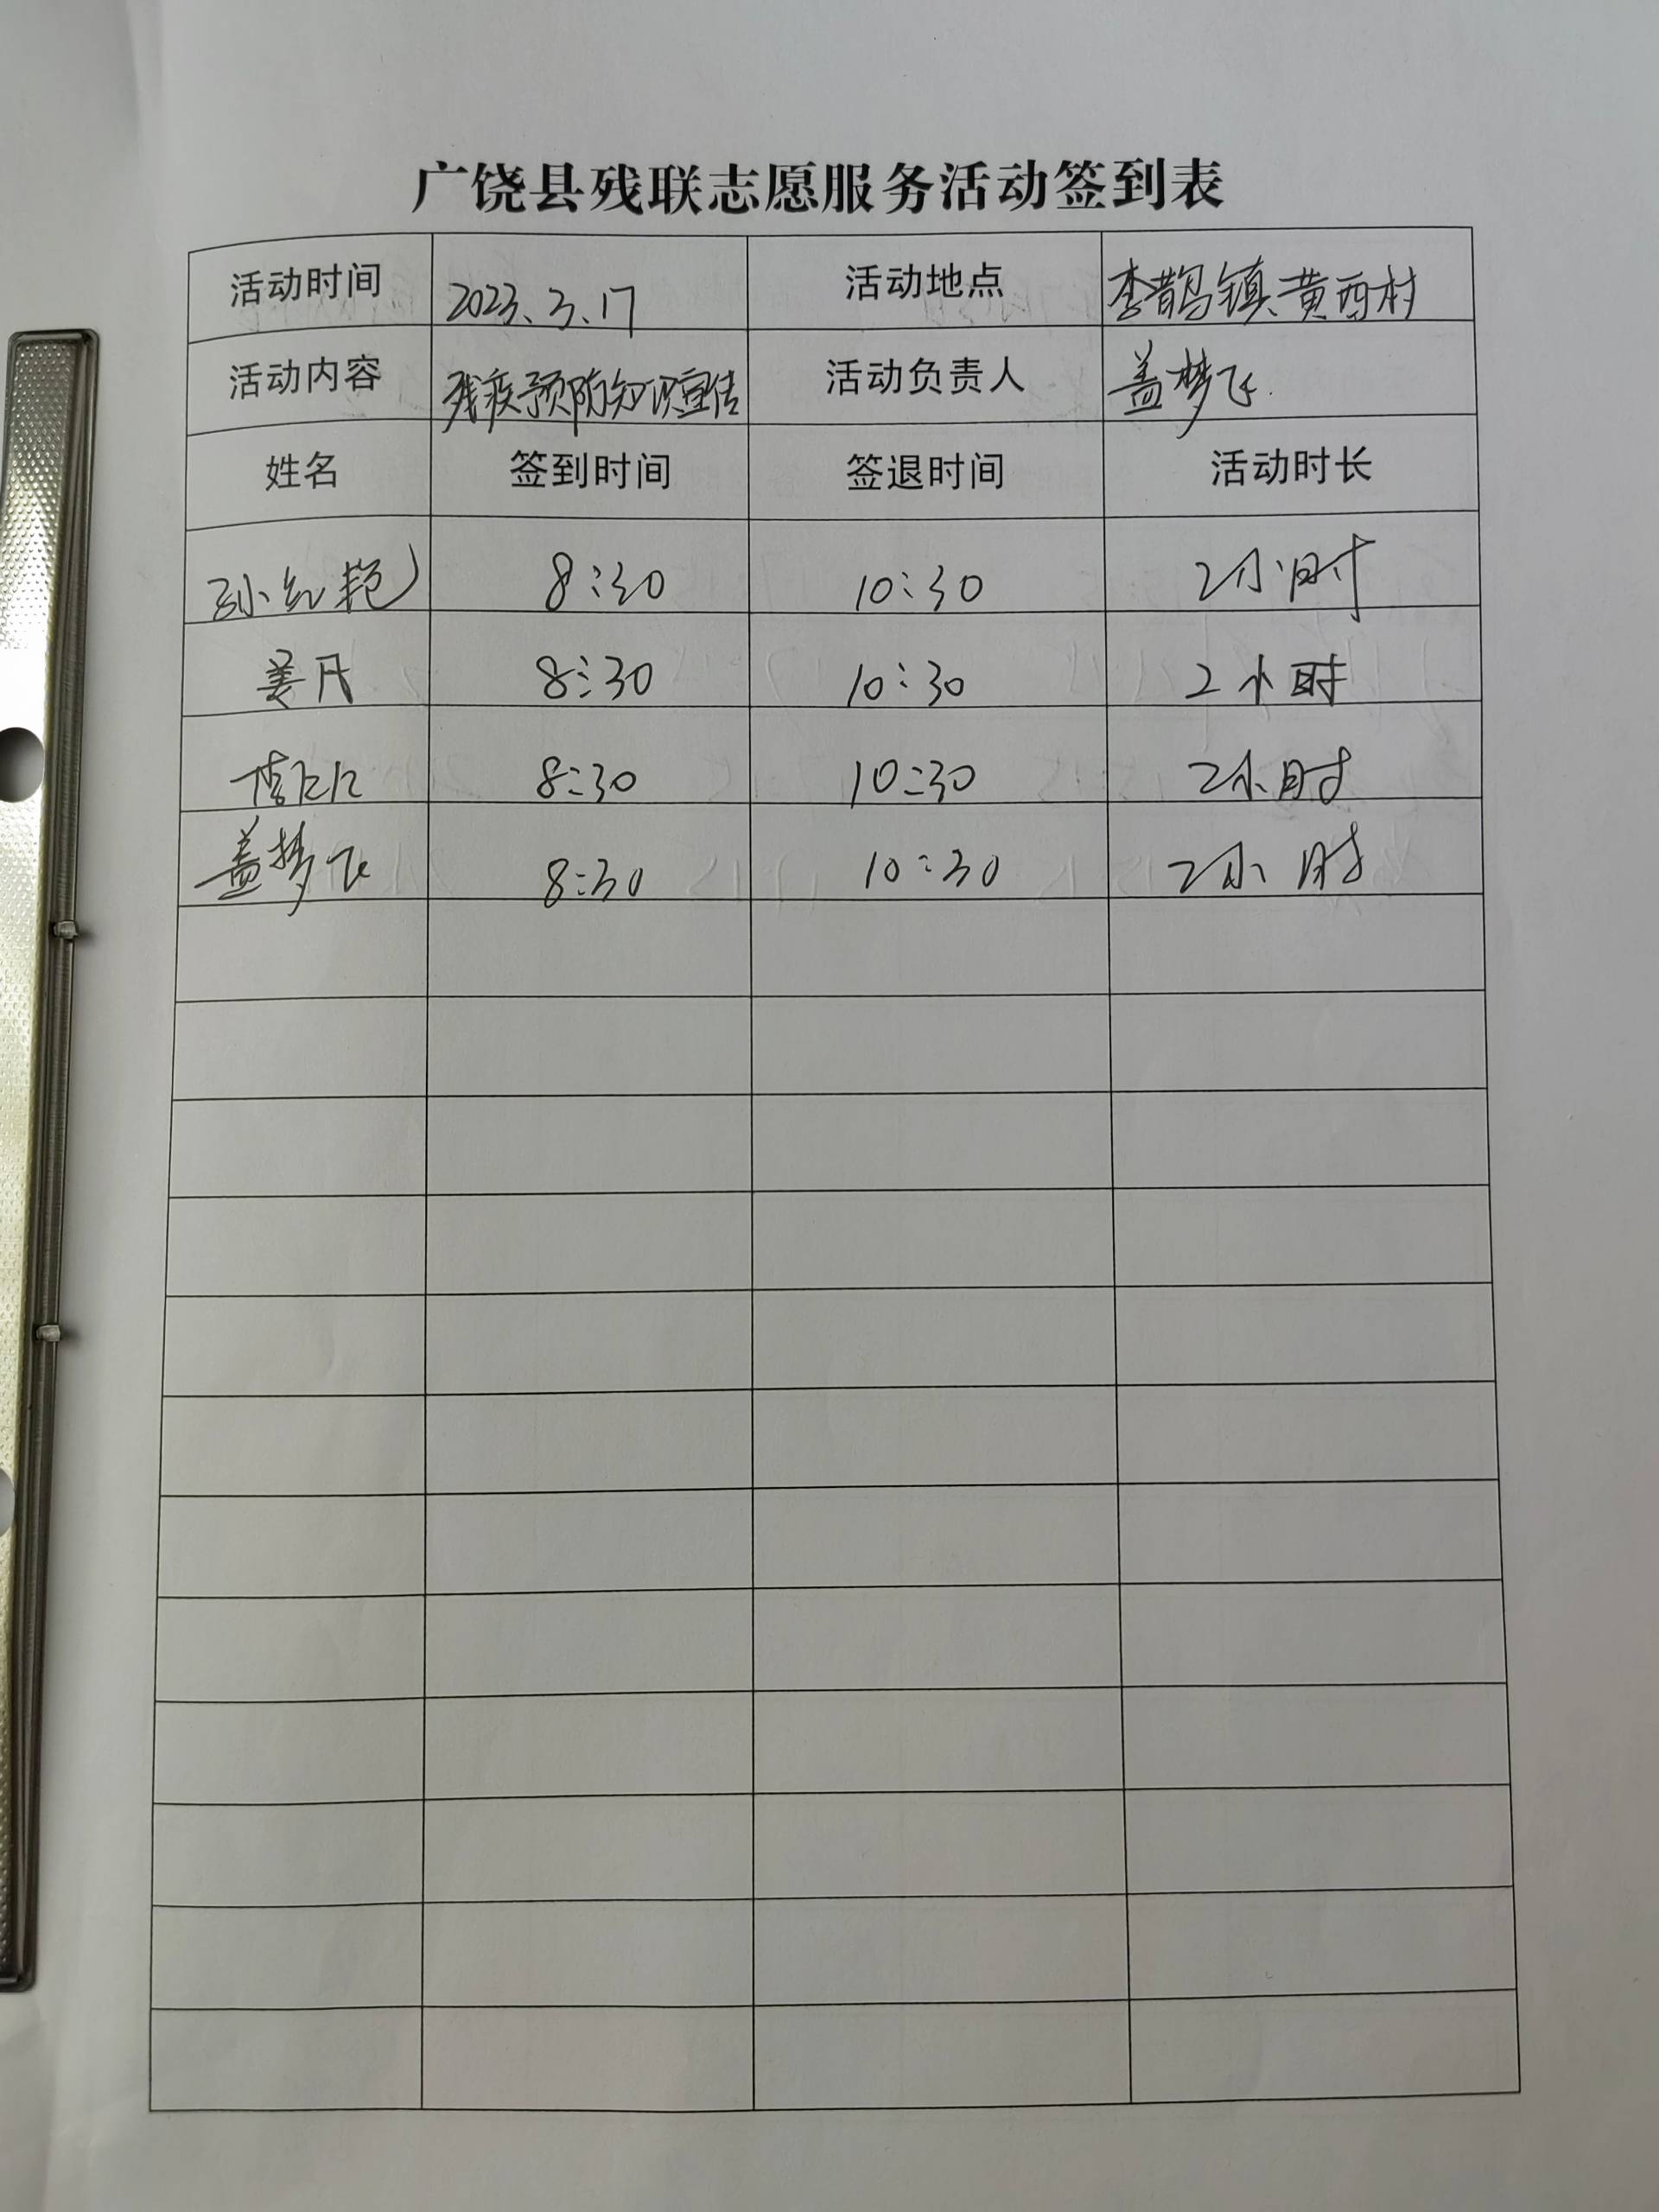 广饶县残联志愿服务活动签到表
活动时间 2023.3.17 活动地点 李鹊镇黄西村
活动内容 残疾预防知识宣传 活动负责人 盖梦飞
姓名 签到时间 签退时间 活动时长
孙红艳 8:30 10:30 2小时
姜丹 8:30 10:30 2小时
8:30 10:30 2小时
盖梦飞 8:30 10:30 2小时